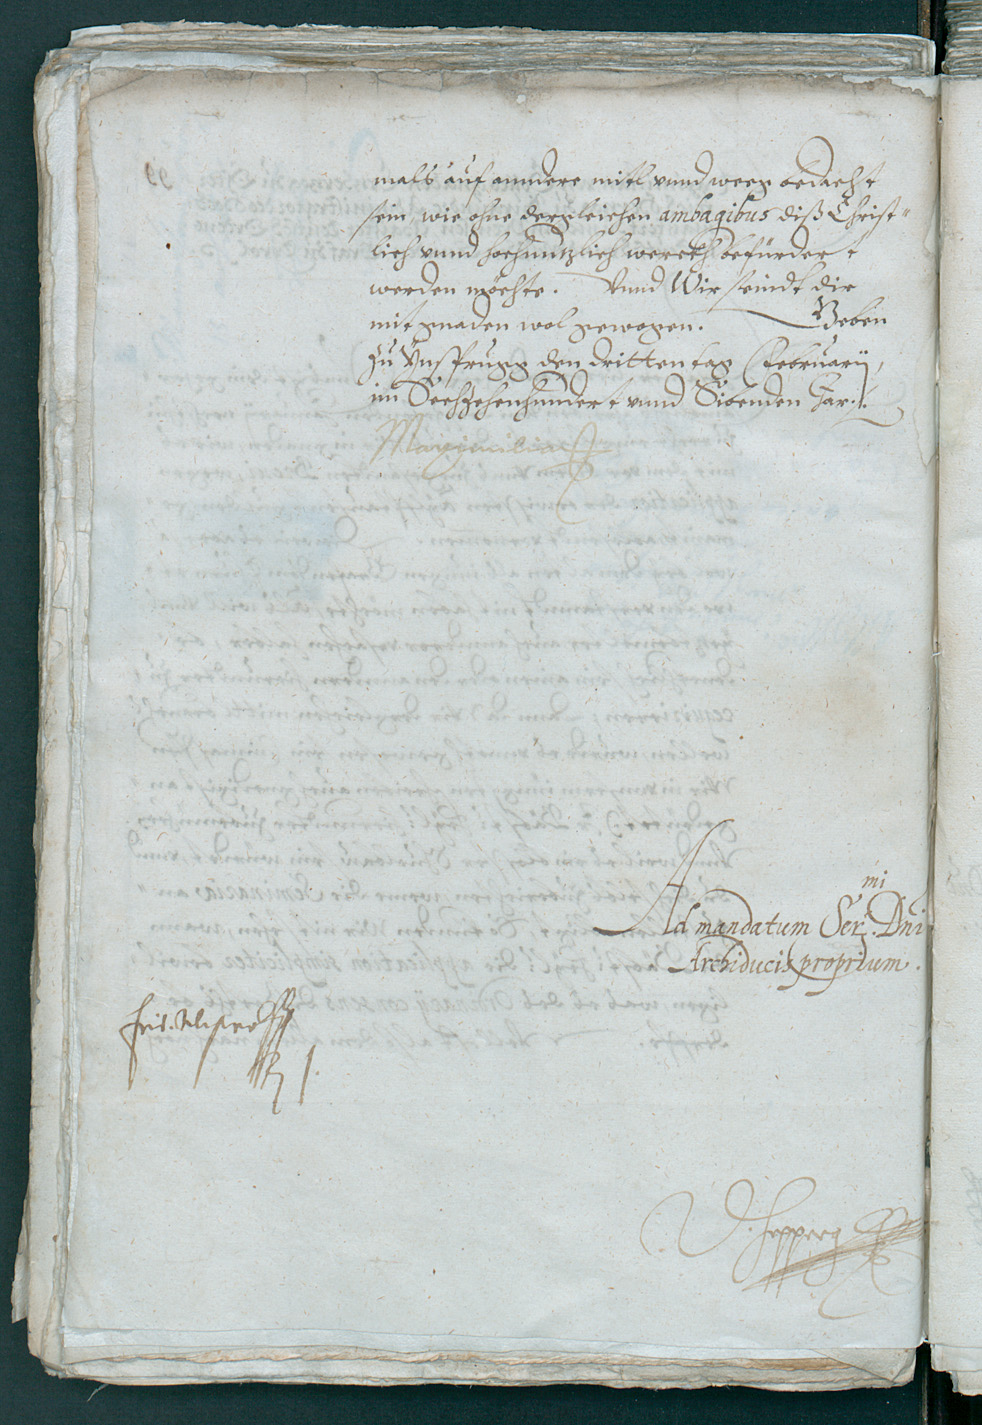 mals auf anndere mitl vnnd weeg bedacht
sein, wie ohne dergleichen ambagibus diß Christ=
lich vnnd hochnutzlich werckh befürdert
werden möchte. Vnnd Wir seindt dir
mit gnaden wol gewogen. Geben
zu Ynsprugg den dritten tag Februarij,
im Sechzehenhundert vnnd Sibenden Jar.
Maximilian
Ad mandatum Ser.mi Dni
Archiducis proprium.